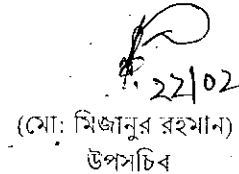 22/02
(মো: মিজানুর রহমান)
উপসচিব